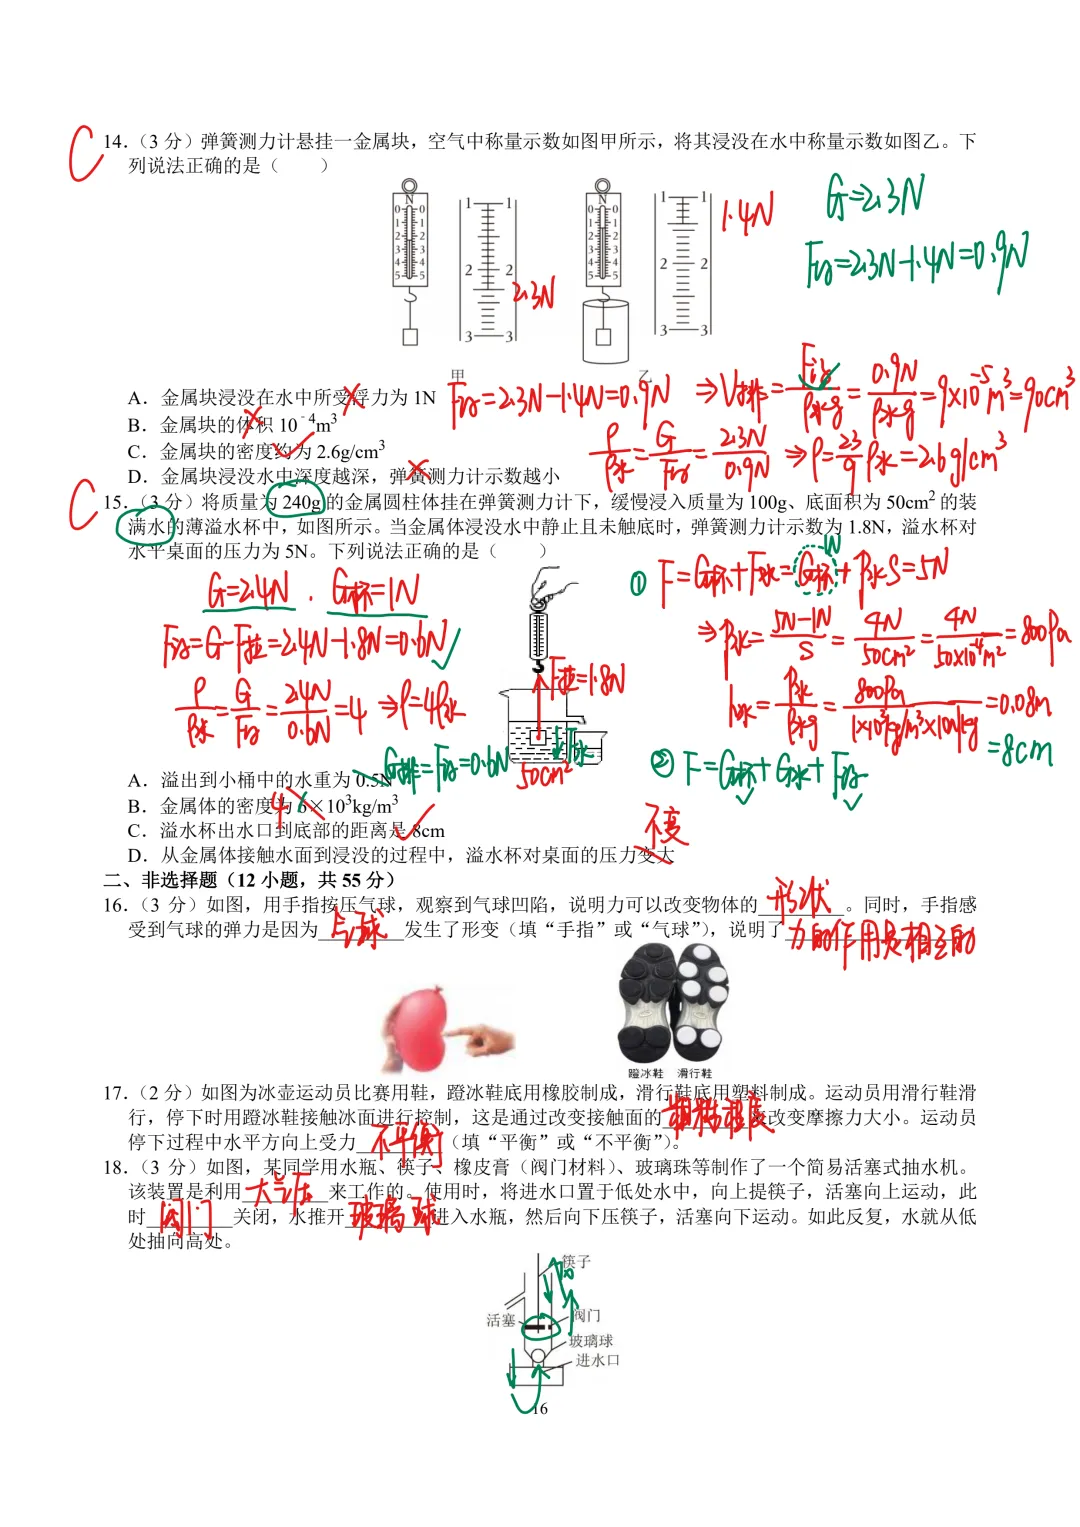 C
14．（3 分）弹簧测力计悬挂一金属块，空气中称量示数如图甲所示，将其浸没在水中称量示数如图乙。下
列说法正确的是（　　）
G=2.3N
F浮=2.3N-1.4N=0.9N
1.4N
2.3N
N
0 0
1 1
2 2
3 3
4 4
5 5
1 1
2 2
3 3
N
0 0
1 1
2 2
3 3
4 4
5 5
1 1
2 2
3 3
甲
乙
A．金属块浸没在水中所受浮力为 1N
F浮=2.3N-1.4N=0.9N ⇒V排=F浮/ρ水g=0.9N/ρ水g=9×10⁻⁵m³=90cm³
B．金属块的体积 10⁻⁴m³
C．金属块的密度约为 2.6g/cm³
ρ/ρ水=G/F浮=2.3N/0.9N ⇒ρ=23/9ρ水=2.6g/cm³
D．金属块浸没水中深度越深，弹簧测力计示数越小
C
15．（3 分）将质量为 240g 的金属圆柱体挂在弹簧测力计下，缓慢浸入质量为 100g、底面积为 50cm² 的装
满水的薄溢水杯中，如图所示。当金属体浸没水中静止且未触底时，弹簧测力计示数为 1.8N，溢水杯对
水平桌面的压力为 5N。下列说法正确的是（　　）
G=2.4N．G杯=1N
F浮=G-F拉=2.4N-1.8N=0.6N
ρ/ρ水=G/F浮=2.4N/0.6N=4 ⇒ρ=4ρ水
F拉=1.8N
F水
50cm²
1N
① F=G杯+F水=G杯+P水S=5N
⇒P水=5N-1N/S=4N/50cm²=4N/50×10⁻⁴m²=800Pa
h水=P水/ρ水g=800Pa/1×10³kg/m³×10N/kg=0.08m
=8cm
② F=G杯+G水+F浮
G排=F浮=0.6N
A．溢出到小桶中的水重为 0.5N
B．金属体的密度为 6×10³kg/m³
4
C．溢水杯出水口到底部的距离是 8cm
D．从金属体接触水面到浸没的过程中，溢水杯对桌面的压力变大
不变
二、非选择题（12 小题，共 55 分）
16．（3 分）如图，用手指按压气球，观察到气球凹陷，说明力可以改变物体的 形状 。同时，手指感
受到气球的弹力是因为 气球 发生了形变（填“手指”或“气球”），说明了 力的作用是相互的
蹬冰鞋 滑行鞋
17．（2 分）如图为冰壶运动员比赛用鞋，蹬冰鞋底用橡胶制成，滑行鞋底用塑料制成。运动员用滑行鞋滑
行，停下时用蹬冰鞋接触冰面进行控制，这是通过改变接触面的 粗糙程度 来改变摩擦力大小。运动员
停下过程中水平方向上受力 不平衡 （填“平衡”或“不平衡”）。
18．（3 分）如图，某同学用水瓶、筷子、橡皮膏（阀门材料）、玻璃珠等制作了一个简易活塞式抽水机。
该装置是利用 大气压 来工作的。使用时，将进水口置于低处水中，向上提筷子，活塞向上运动，此
时 阀门 关闭，水推开 玻璃球 进入水瓶，然后向下压筷子，活塞向下运动。如此反复，水就从低
处抽向高处。
筷子
活塞
阀门
玻璃球
进水口
16